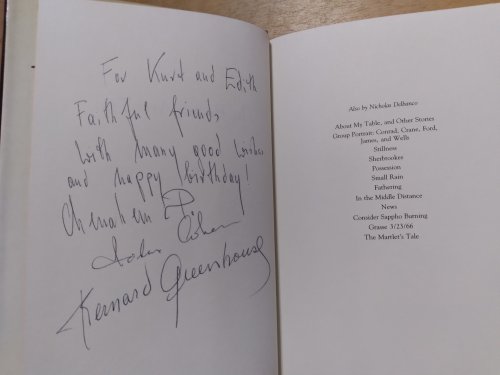 For Kurt and Edith
Faithful friends,
with many good wishes
and happy birthday!
Menahem P
Isidore Cohen
Bernard Greenhouse
Also by Nicholas Delbanco
About My Table, and Other Stories
Group Portrait: Conrad, Crane, Ford,
James, and Wells
Stillness
Sherbrookes
Possession
Small Rain
Fathering
In the Middle Distance
News
Consider Sappho Burning
Grasse 3/23/66
The Martlet's Tale